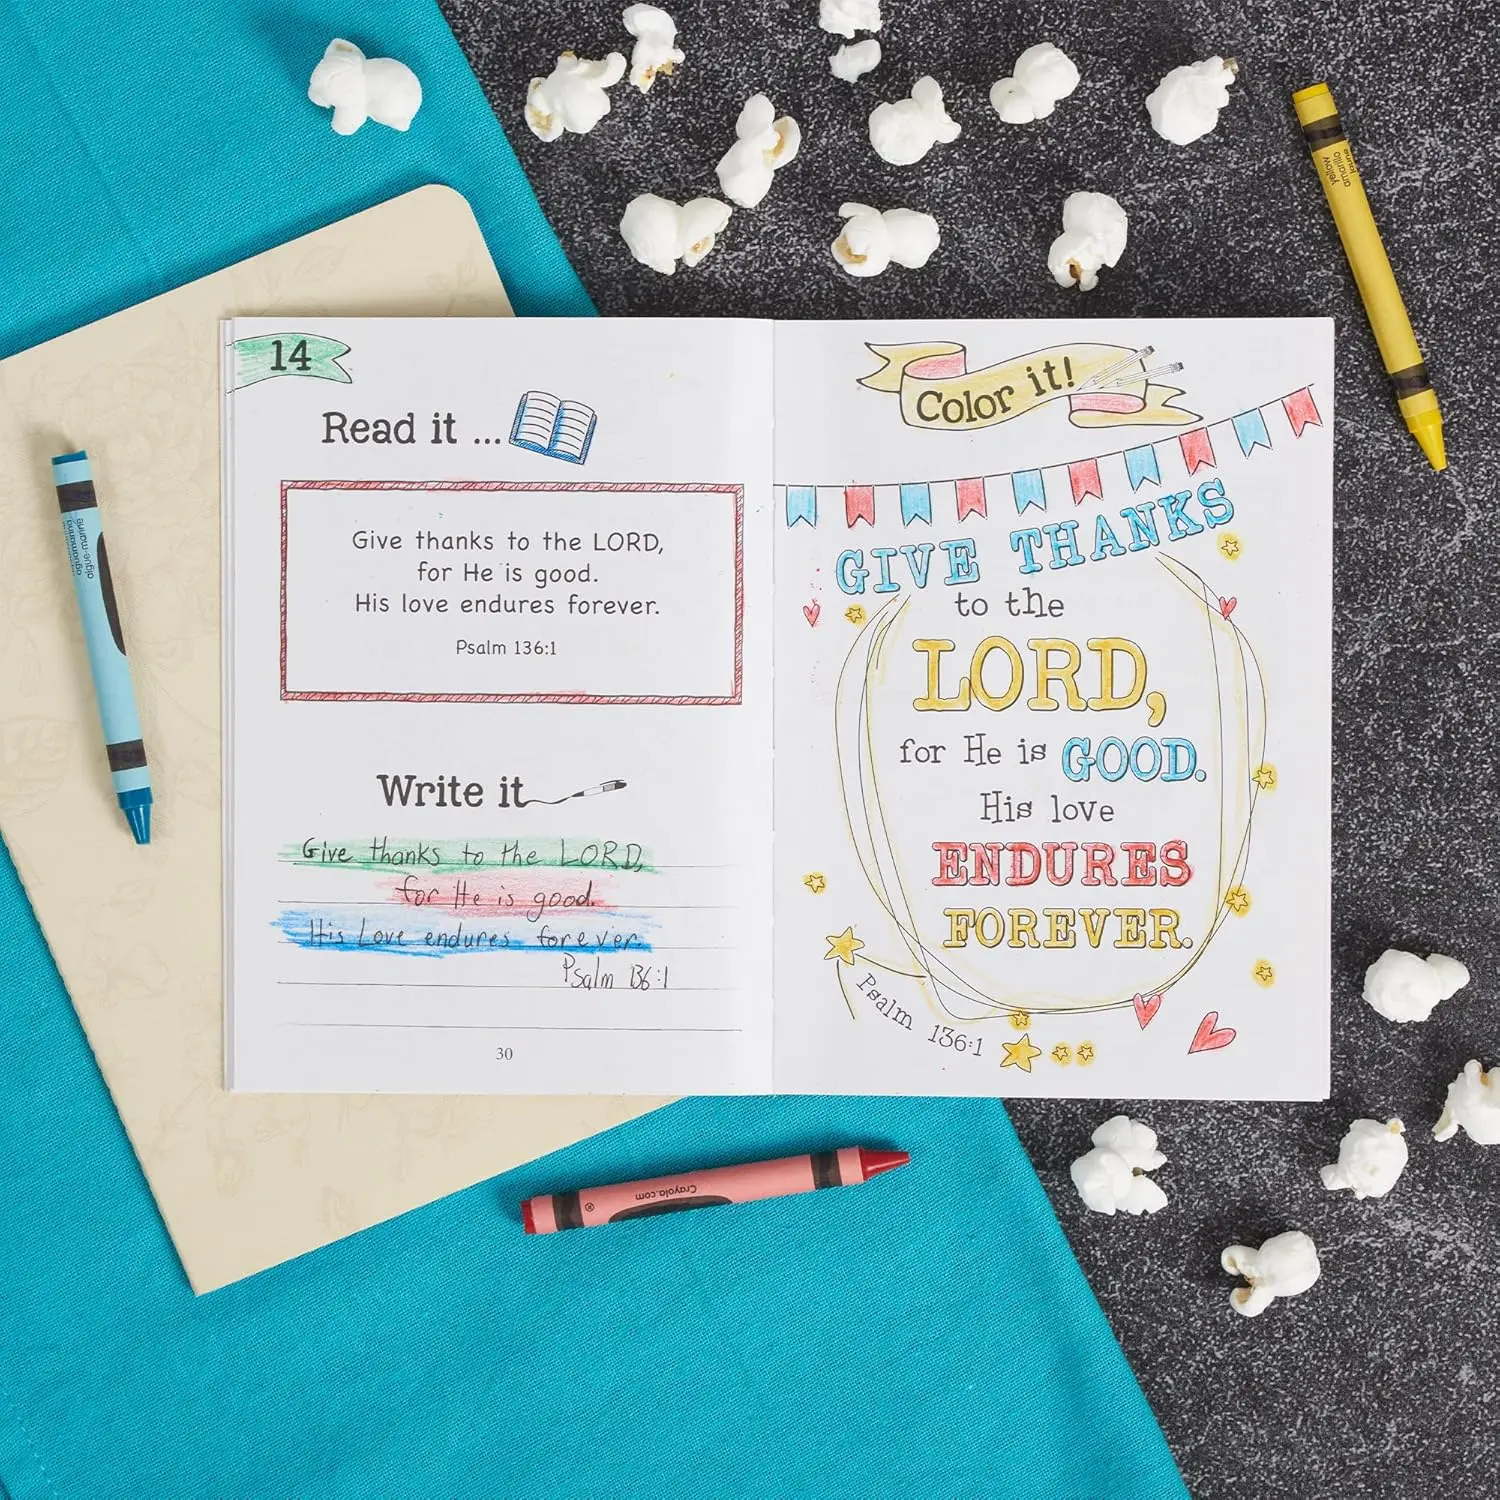 14
Read it ...
Give thanks to the LORD,
for He is good.
His love endures forever.
Psalm 136:1
Write it
Give thanks to the LORD,
for He is good.
His Love endures forever.
Psalm 136:1
30
Color it!
GIVE THANKS
to the
LORD,
for He is GOOD.
His love
ENDURES
FOREVER.
Psalm 136:1
yellow
amarillo
jaune
aigue-marine
Crayola.com ®